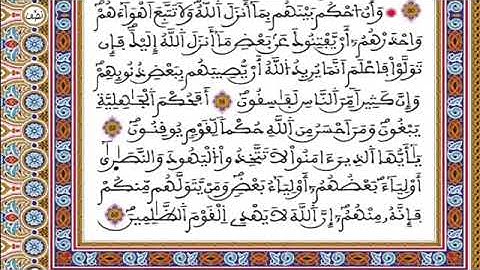 وَأَنُ اَحْكُم بَيْنَهُم بِمَا أَنزَلَ اَللَّهُ وَلَا تَتَّبِعَ اَهْوَآءَهُمْ
وَاحْذَرْهُمُۥٓ أَنْ يَّفْتِنُوكَ عَنۢ بَعْضِ مَآ أَنزَلَ اَللَّهُ إِلَيْكَ فَإِن
تَوَلَّوْاْ فَاعْلَمَ اَنَّمَا يُرِيدُ اُللَّهُ أَنْ يُّصِيبَهُم بِبَعْضِ ذُنُوبِهِمْ
وَإِنَّ كَثِيراً مِّنَ اَلنَّاسِ لَفَٰسِقُونَ أَفَحُكْمَ اَلْجَٰهِلِيَّةِ
يَبْغُونَ وَمَنَ اَحْسَنُ مِنَ اَللَّهِ حُكْماً لِّقَوْمٍ يُوقِنُونَ
يَٰٓأَيُّهَا اَلذِينَ ءَامَنُواْ لَا تَتَّخِذُواْ اُلْيَهُودَ وَالنَّصَٰرَىٰٓ
أَوْلِيَآءَ بَعْضُهُمُۥٓ أَوْلِيَآءُ بَعْضٍ وَمَنْ يَّتَوَلَّهُم مِّنكُمْ
فَإِنَّهُۥ مِنْهُمُۥٓ إِنَّ اَللَّهَ لَا يَهْدِے اِلْقَوْمَ اَلظَّٰلِمِينَ